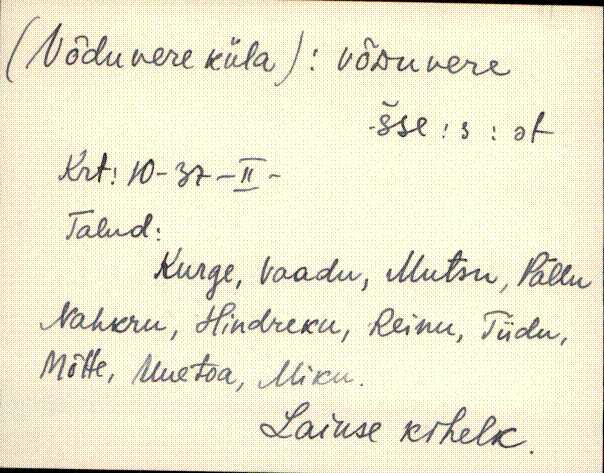 (Võduvere küla): võDuvere
-šse : s : ət
Krt: 10-37-II-
Talud:
Kurge, Vaadu, Mutsu, Pällu
Nahkru, Hindreku, Reinu, Tiidu,
Mõtte, Uuetoa, Miku.
Laiuse kihelk.